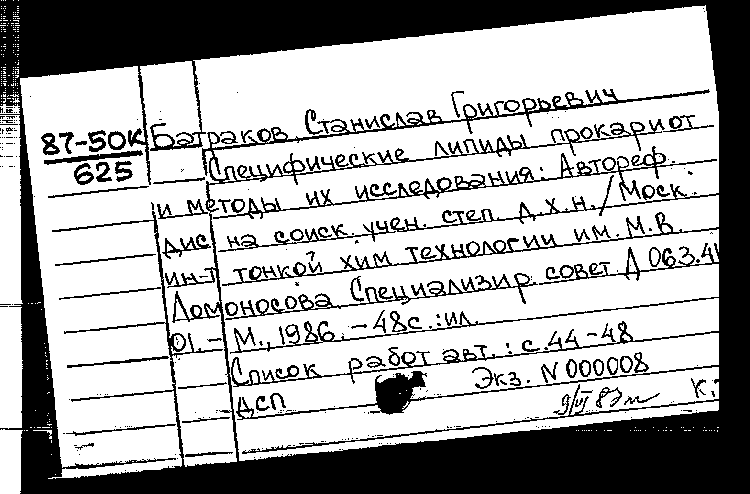 87-50К
625
Батраков, Станислав Григорьевич
Специфические липиды прокариот
и методы их исследования: Автореф.
дис на соиск. учен. степ. д.х.н. / Моск.
ин-т тонкой хим технологии им. М.В.
Ломоносова. Специализир. совет Д 063.41
01. – М., 1986. – 48с. : ил.
Список работ авт.: с. 44-48
ДСП Экз. N 000008